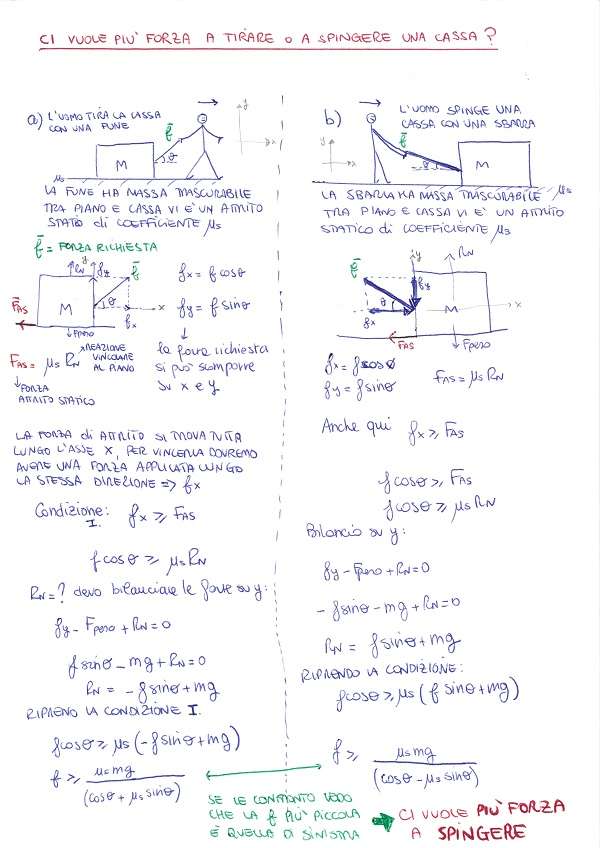 CI VUOLE PIU' FORZA A TIRARE O A SPINGERE UNA CASSA?
a) L'UOMO TIRA LA CASSA
CON UNA FUNE
f
y
x
M
θ
μs
LA FUNE HA MASSA TRASCURABILE
TRA PIANO E CASSA VI E' UN ATTRITO
STATICO di COEFFICIENTE μs
f = FORZA RICHIESTA
RN
y
fy
f
M
θ
x
fx
FAS
Fpeso
fx = f cosθ
fy = f sinθ
la forza richiesta
si può scomporre
su x e y
FAS = μs RN
REAZIONE
VINCOLARE
AL PIANO
FORZA
ATTRITO STATICO
LA FORZA di ATTRITO SI TROVA TUTTA
LUNGO L'ASSE X, PER VINCERLA DOVREMO
AVERE UNA FORZA APPLICATA LUNGO
LA STESSA DIREZIONE => fx
Condizione: fx ≥ FAS
I.
f cosθ ≥ μs RN
RN = ? devo bilanciare le forze su y:
fy - Fpeso + RN = 0
f sinθ - mg + RN = 0
RN = - f sinθ + mg
RIPRENDO LA CONDIZIONE I.
f cosθ ≥ μs (- f sinθ + mg)
f ≥ μs mg
(cosθ + μs sinθ)
b) L'UOMO SPINGE UNA
CASSA CON UNA SBARRA
f
y
x
θ
M
LA SBARRA HA MASSA TRASCURABILE μs
TRA PIANO E CASSA VI E' UN ATTRITO
STATICO di COEFFICIENTE μs
y
RN
f
fy
θ
fx
M
x
FAS
Fpeso
fx = f cosθ
fy = f sinθ
FAS = μs RN
Anche qui fx ≥ FAS
f cosθ ≥ FAS
f cosθ ≥ μs RN
Bilancio su y:
fy - Fpeso + RN = 0
- f sinθ - mg + RN = 0
RN = f sinθ + mg
RIPRENDO LA CONDIZIONE:
f cosθ ≥ μs (f sinθ + mg)
f ≥ μs mg
(cosθ - μs sinθ)
SE LE CONFRONTO VEDO
CHE LA f PIÙ PICCOLA
È QUELLA DI SINISTRA
CI VUOLE PIÙ FORZA
A SPINGERE